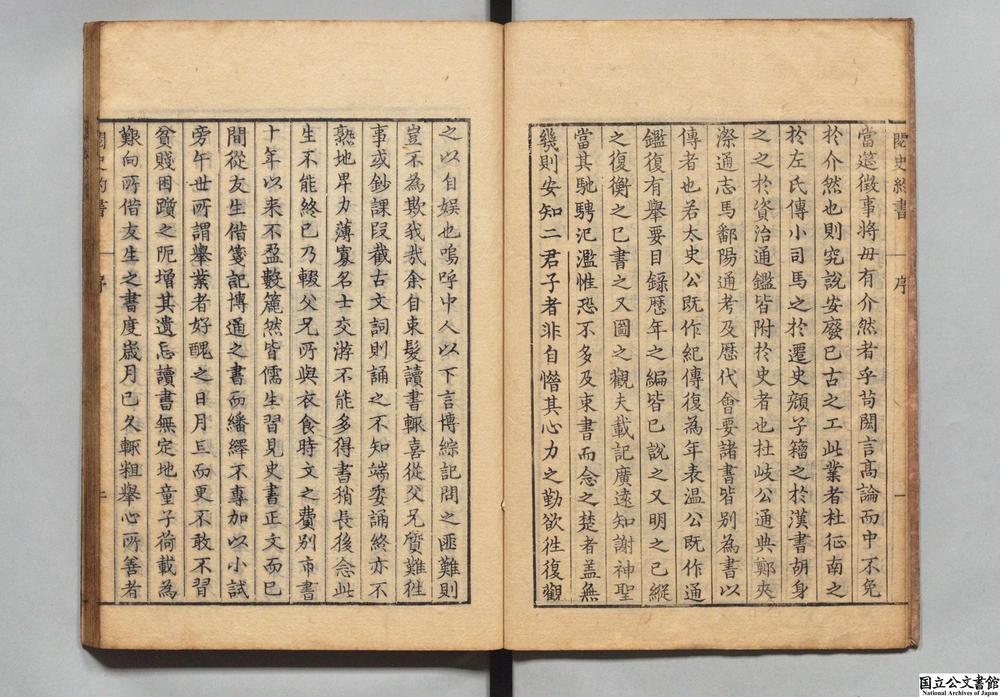 閱史約書 序 一
當筵徵事將毋有介然者乎苟闊言高論而中不免
於介然也則究說安廢已古之工此業者杜征南之
於左氏傳小司馬之於遷史顏子籀之於漢書胡身
之之於資治通鑑皆附於史者也杜岐公通典鄭夾
漈通志馬鄱陽通考及歷代會要諸書皆別為書以
傳者也若太史公既作紀傳復為年表溫公既作通
鑑復有舉要目錄歷年之編皆已說之又明之已縱
之復衡之已書之又圖之觀夫載記廣遠知謝神聖
當其馳騁氾濫惟恐不多及束書而念之楚者盖無
幾則安知二君子者非自憯其心力之勤欲徃復觀
之以自娱也嗚呼中人以下言博綜記問之匪難則
豈不為欺我哉余自束髮讀書輒喜從父兄質難徃
事或鈔課段截古文詞則誦之不知端委誦終亦不
熟地畀力薄寡名士交游不能多得書稍長後念此
生不能終已乃輟父兄所與衣食時文之費別市書
十年以来不盈數簏然皆儒生習見史書正文而已
間從友生借箋記博通之書而繙繹不專加以小試
旁午世所謂舉業者好醜之日月三而更不敢不習
貧賤困躓之阨增其遺忘讀書無定地童子荷載為
艱向所借友生之書度歲月已久輒粗舉心所善者
閱史約書 序 二
国立公文書館
National Archives of Japan